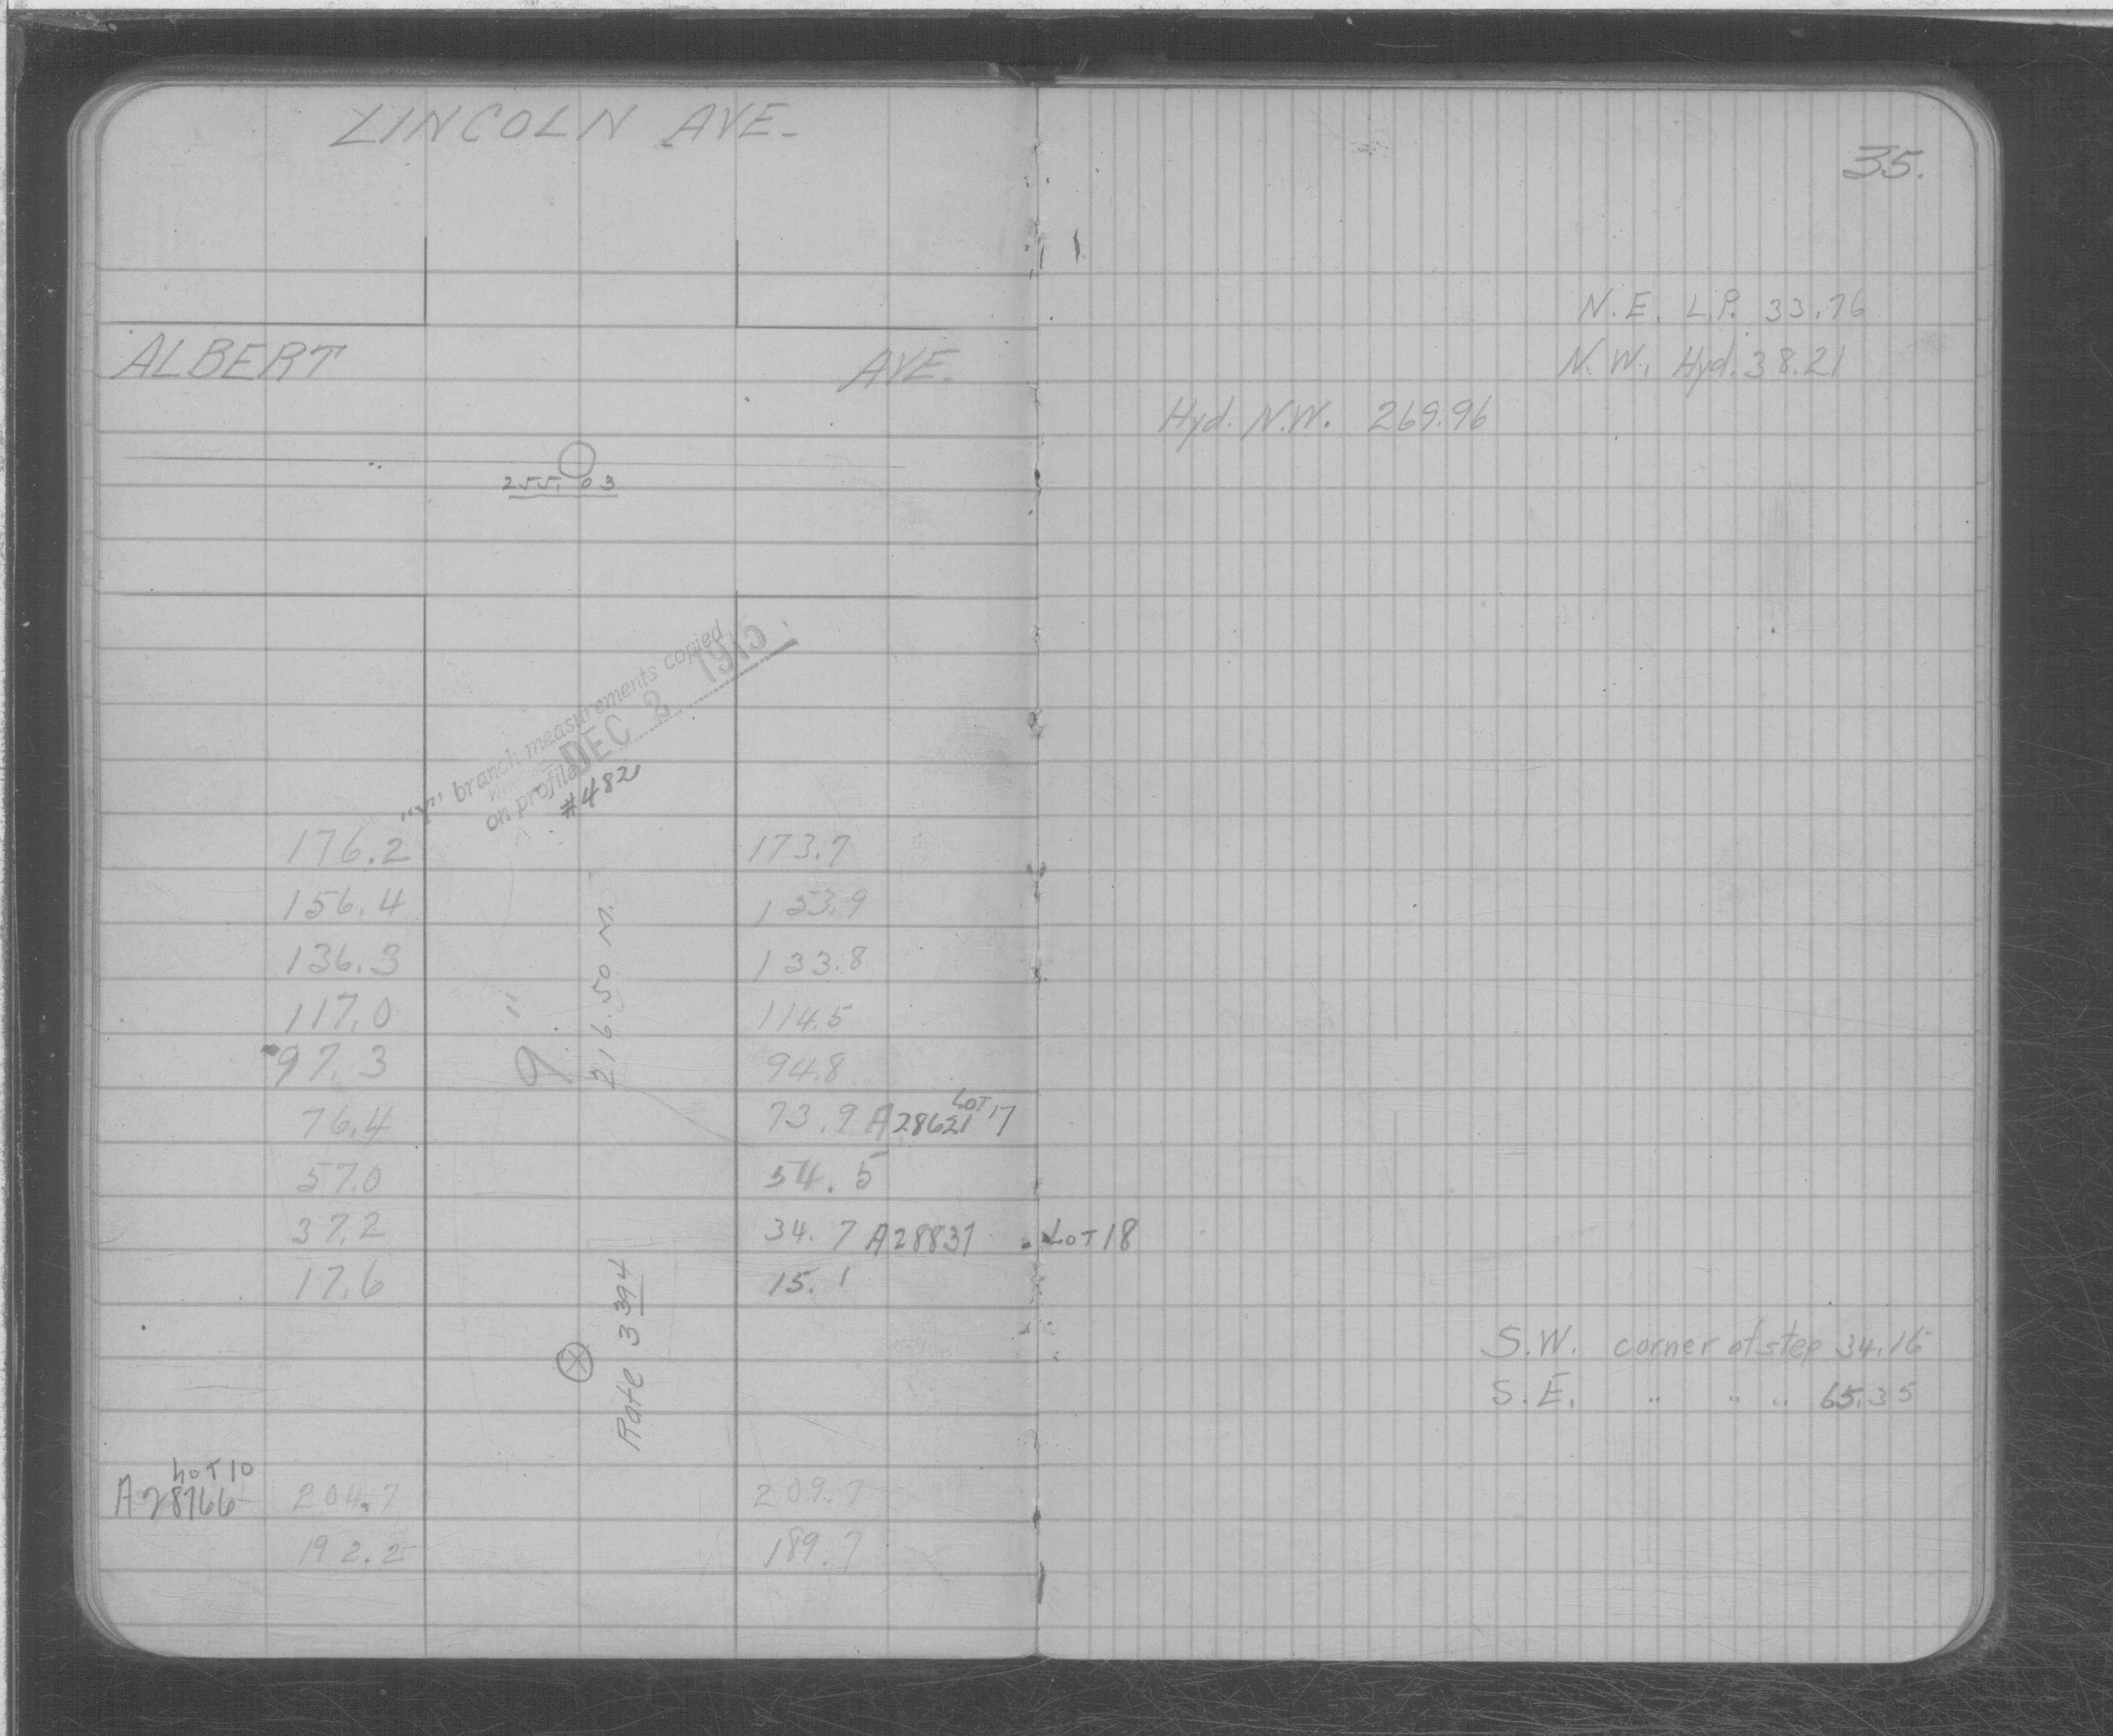 LINCOLN AVE.
ALBERT AVE.
255.03
"Y" branch measurements copied
on profile DEC 2 1915
#482
176.2 173.7
156.4 153.9
136.3 133.8
117.0 114.5
97.3 94.8
9"
216.50 M.
LOT 17
76.4 73.9 A28621
57.0 54.5
37.2 34.7 A28837 LOT 18
17.6 15.1
Rate 3 394
LOT 10
A28766 204.7 209.7
192.2 189.7
35.
N.E. L.P. 33.76
N.W. Hyd. 38.21
Hyd. N.W. 269.96
S.W. corner of step 34.16
S.E. " " " 65.35